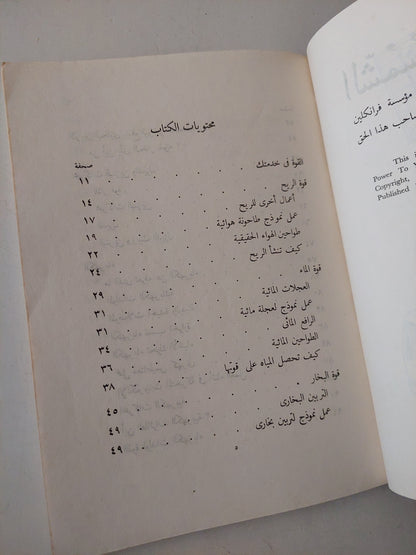 محتويات الكتاب
صفحة
القوة فى خدمتك . . . . . ١١
قوة الريح . . . . . ١٤
أعمال أخرى للريح . . . . . ١٧
عمل نموذج طاحونة هوائية . . . . . ١٩
طواحين الهواء الحقيقية . . . . . ٢٢
كيف تنشأ الريح . . . . . ٢٤
قوة الماء . . . . . ٢٩
العجلات المائية . . . . . ٣١
عمل نموذج لعجلة مائية . . . . . ٣١
الرافع المائى . . . . . ٣٤
الطواحين المائية . . . . . ٣٦
كيف تحصل المياه على قوتها . . . . . ٣٨
قوة البخار . . . . . ٤٥
التربين البخارى . . . . . ٤٩
عمل نموذج لتربين بخارى . . . . . ٤٩
٥
مؤسسة فرانكلين
صاحب هذا الحق
This
Power To
Copyright,
Published